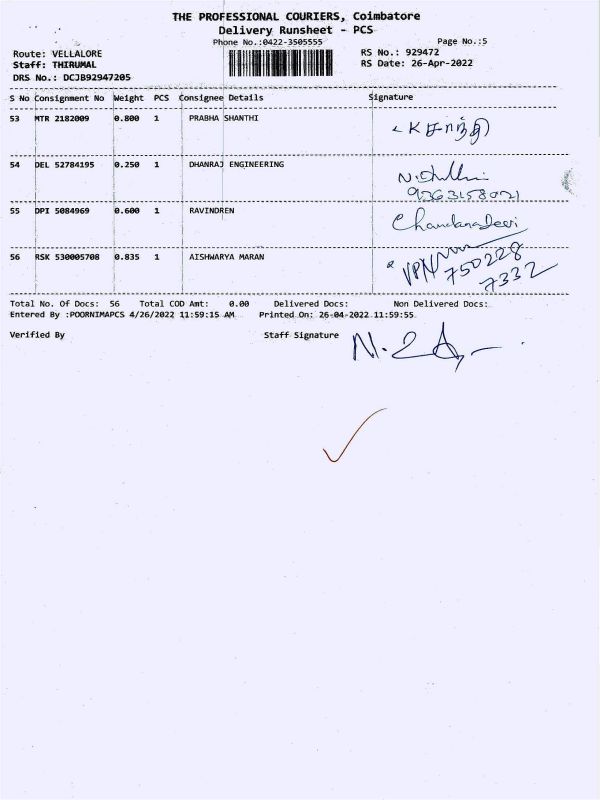 THE PROFESSIONAL COURIERS, Coimbatore
Delivery Runsheet - PCS
Phone No.:0422-3505555 Page No.:5
Route: VELLALORE RS No.: 929472
Staff: THIRUMAL RS Date: 26-Apr-2022
DRS No.: DCJB92947205
S No Consignment No Weight PCS Consignee Details Signature
53 MTR 2182009 0.800 1 PRABHA SHANTHI
54 DEL 52784195 0.250 1 DHANRAJ ENGINEERING
55 DPI 5084969 0.600 1 RAVINDREN ChandanaDevi
56 RSK 530005708 0.835 1 AISHWARYA MARAN
750228
7332
Total No. Of Docs: 56 Total COD Amt: 0.00 Delivered Docs: Non Delivered Docs:
Entered By :POORNIMAPCS 4/26/2022 11:59:15 AM Printed On: 26-04-2022 11:59:55
Verified By Staff Signature